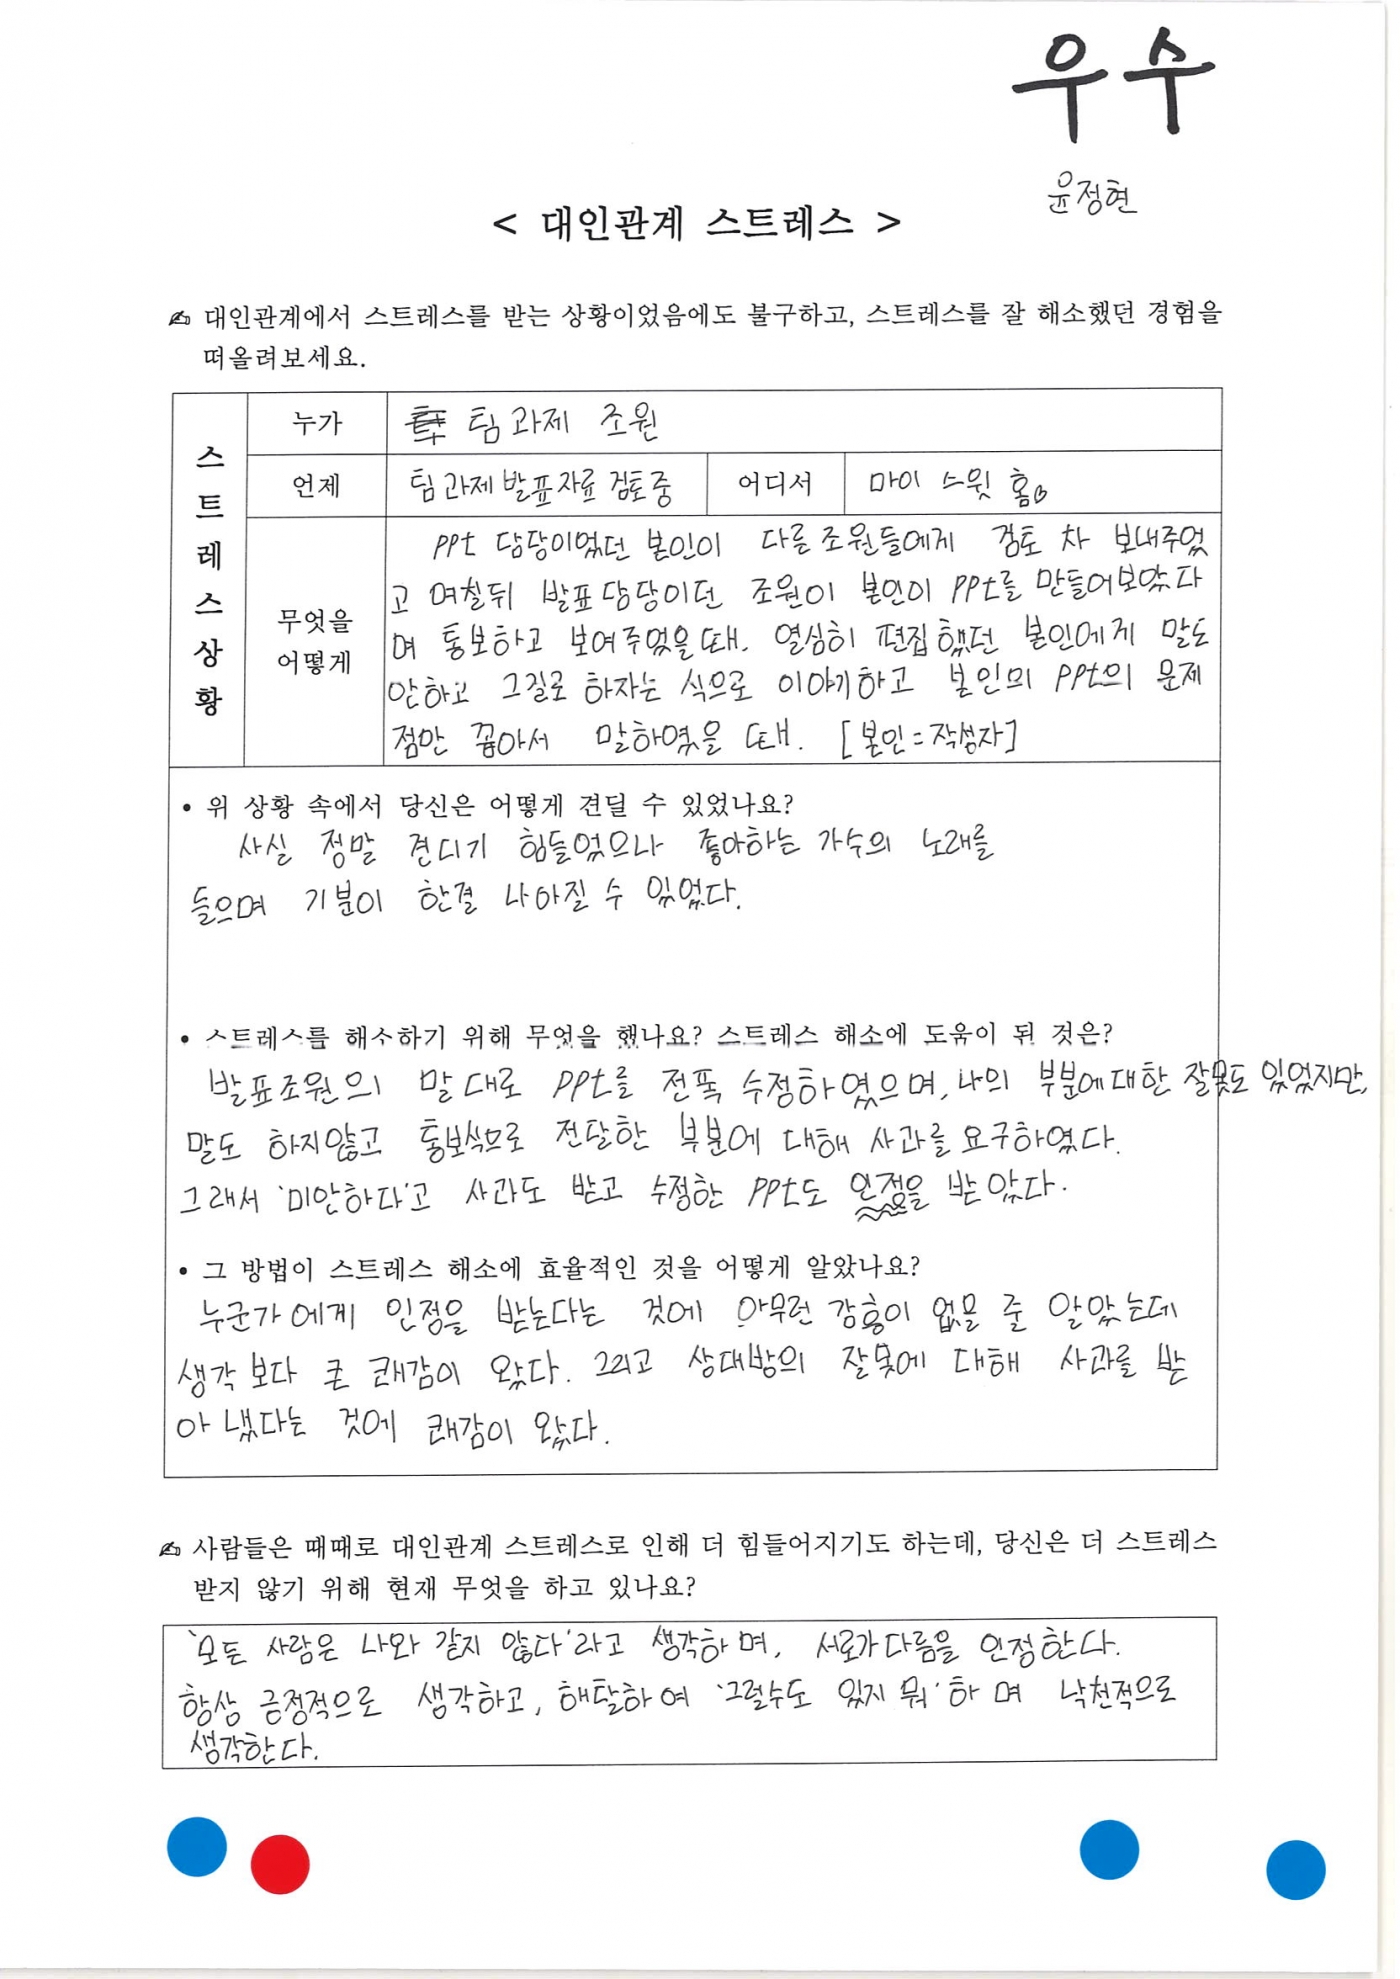 우수
윤정현
< 대인관계 스트레스 >
✍ 대인관계에서 스트레스를 받는 상황이었음에도 불구하고, 스트레스를 잘 해소했던 경험을
떠올려보세요.
스트레스 상황
누가 팀 과제 조원
언제 팀 과제 발표자료 검토중 어디서 마이 스윗 홈
무엇을
어떻게
ppt 담당이었던 본인이 다른 조원들에게 검토 차 보내주었
고 며칠뒤 발표 담당이던 조원이 본인이 ppt를 만들어보았다
며 통보하고 보여주었을때. 열심히 편집했던 본인에게 말도
안하고 그길로 하자는 식으로 이야기하고 본인의 ppt의 문제
점만 꼽아서 말하였을 때. [본인=작성자]
• 위 상황 속에서 당신은 어떻게 견딜 수 있었나요?
사실 정말 견디기 힘들었으나 좋아하는 가수의 노래를
들으며 기분이 한결 나아질 수 있었다.
• 스트레스를 해소하기 위해 무엇을 했나요? 스트레스 해소에 도움이 된 것은?
발표조원의 말대로 ppt를 전폭 수정하였으며, 나의 부분에 대한 잘못도 있었지만,
말도 하지않고 통보식으로 전달한 부분에 대해 사과를 요구하였다.
그래서 '미안하다'고 사과도 받고 수정한 ppt도 인정을 받았다.
• 그 방법이 스트레스 해소에 효율적인 것을 어떻게 알았나요?
누군가에게 인정을 받는다는 것에 아무런 감흥이 없을 줄 알았는데
생각보다 큰 쾌감이 왔다. 그리고 상대방의 잘못에 대해 사과를 받
아 냈다는 것에 쾌감이 왔다.
✍ 사람들은 때때로 대인관계 스트레스로 인해 더 힘들어지기도 하는데, 당신은 더 스트레스
받지 않기 위해 현재 무엇을 하고 있나요?
'모든 사람은 나와 같지 않다'라고 생각하며, 서로가 다름을 인정한다.
항상 긍정적으로 생각하고, 해탈하여 '그럴수도 있지 뭐' 하며 낙천적으로
생각한다.